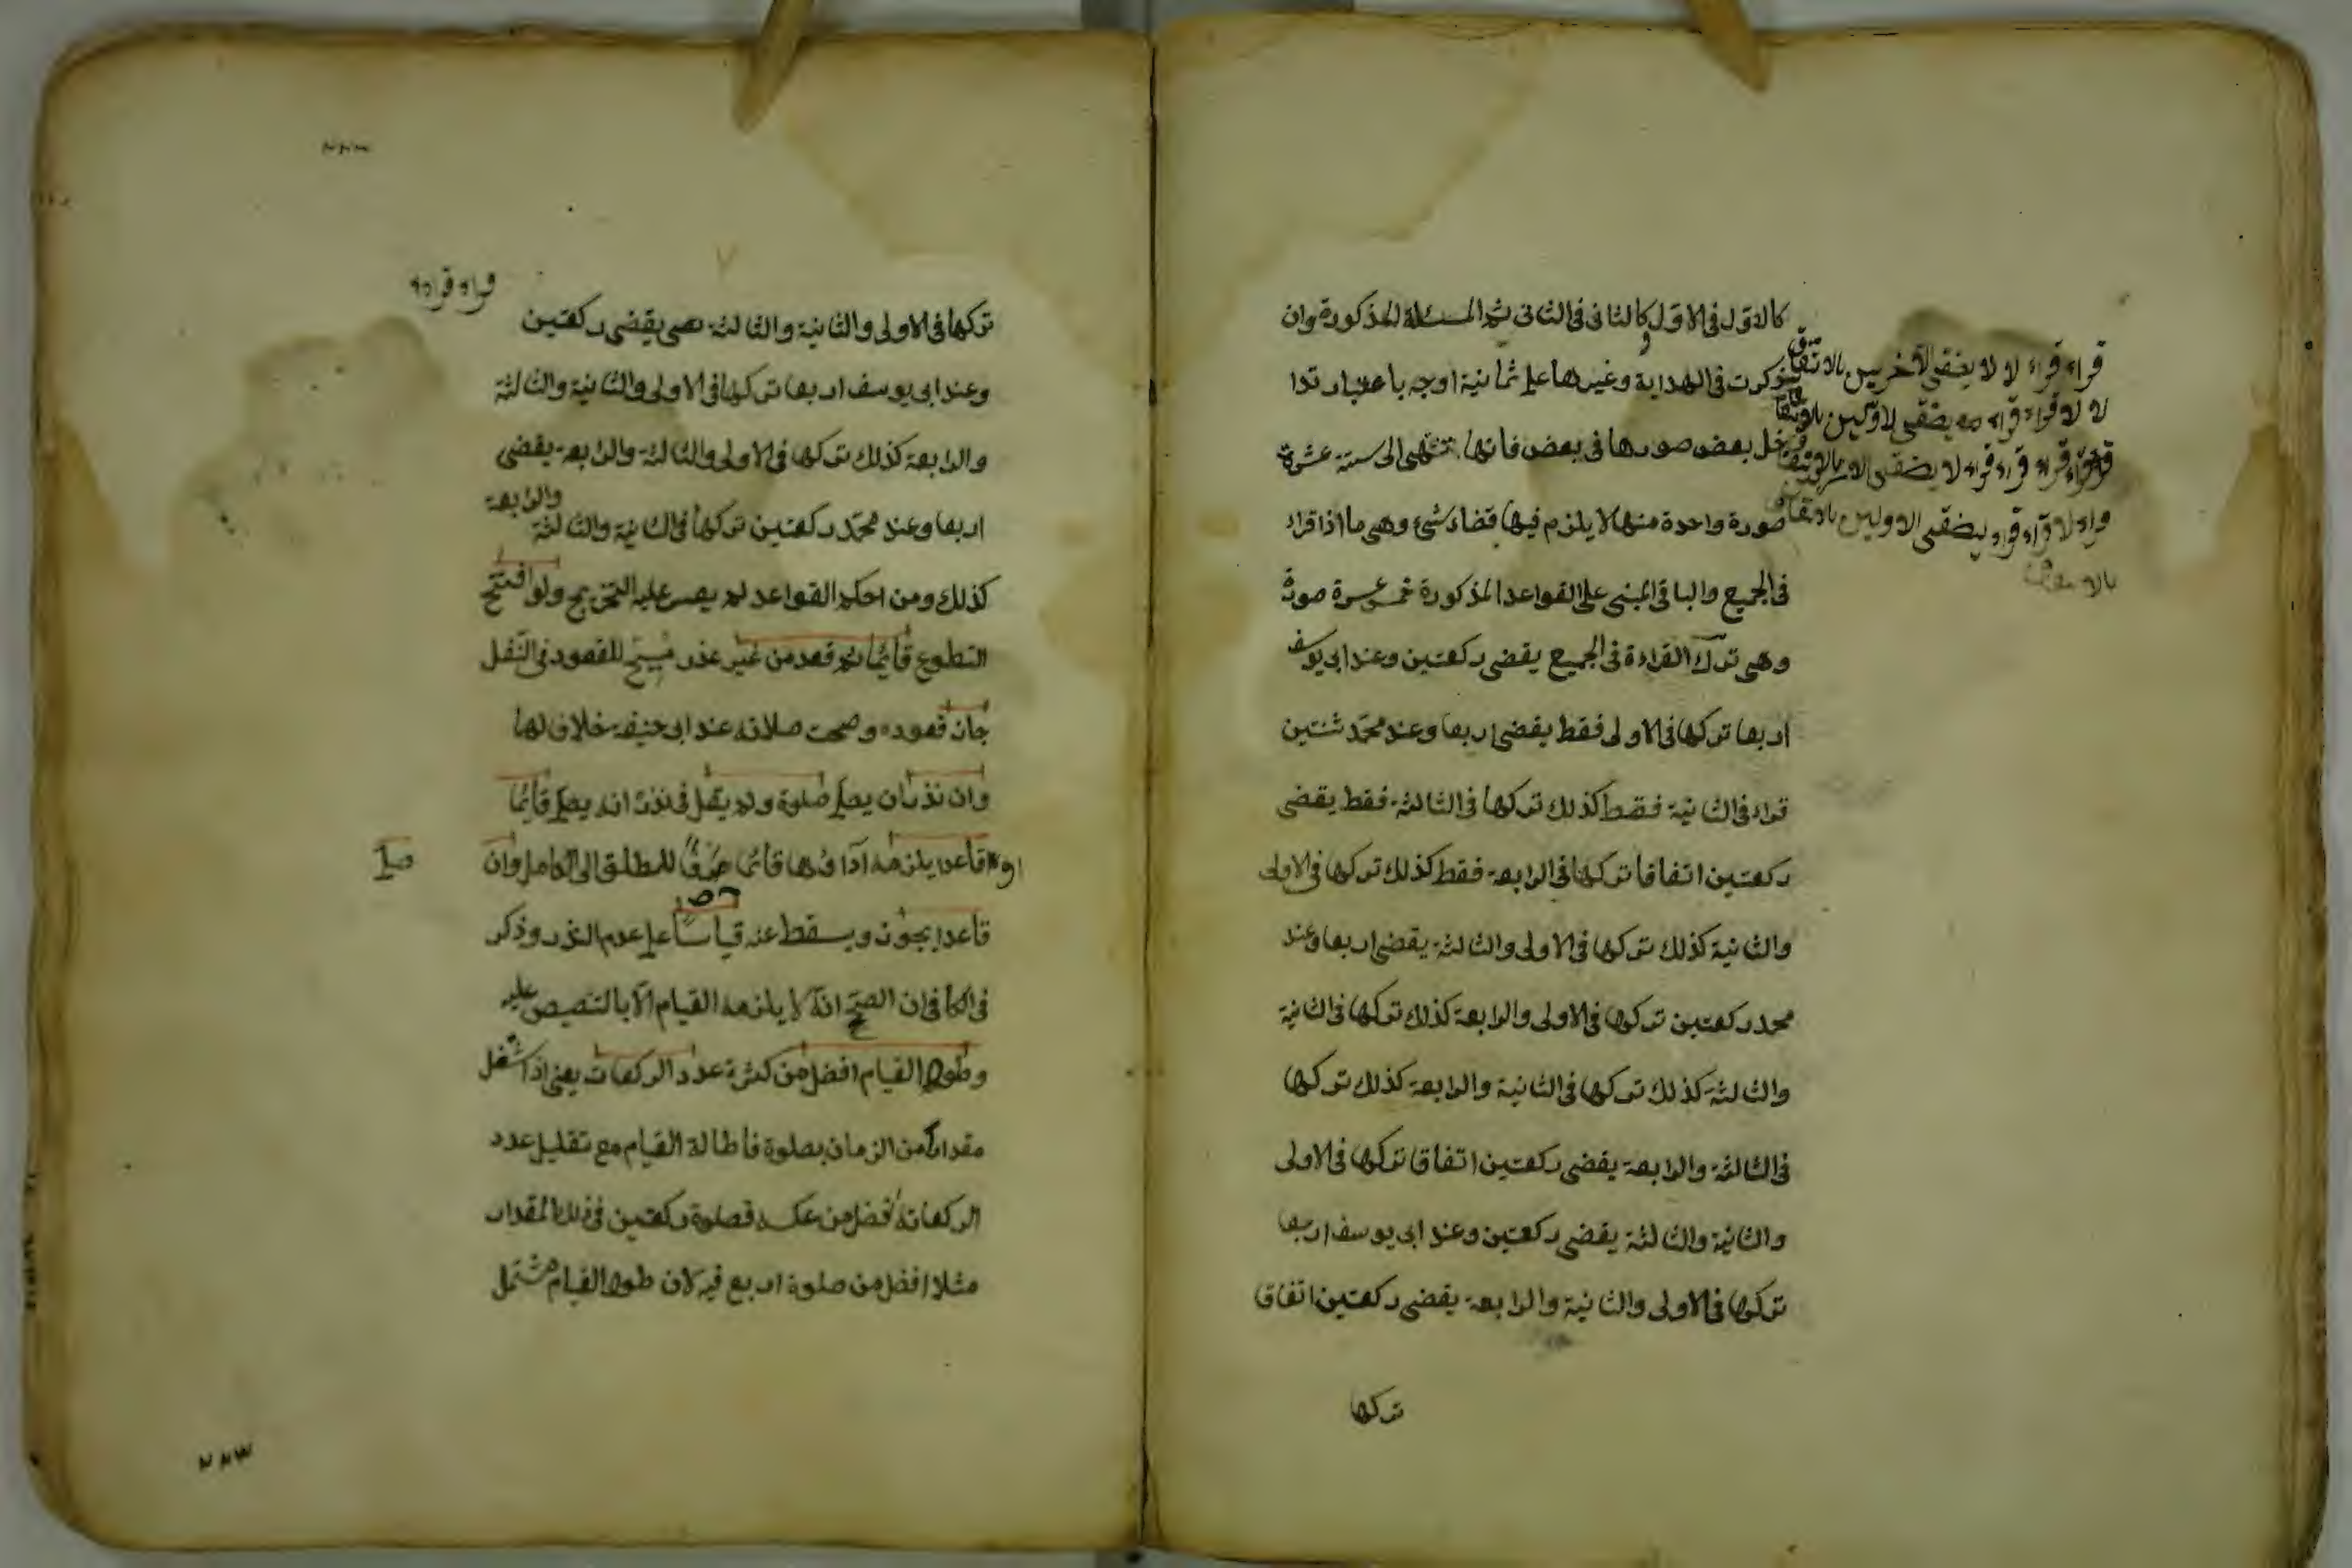 كالاول فى الاول وكالثانى فى الثانى ثم المسئلة المذكورة وان
ذكرت فى الهداية وغيرها على ثمانية اوجه باعتبار تدا
خل بعض صورها فى بعض فانها تنتهى الى ستة عشرة
صورة واحدة منها لا يلزم فيها قضاء شئ وهى ما اذا قراء
فى الجميع والباقى المبنى على القواعد المذكورة خمس عسرة صورة
وهى ترك القراءة فى الجميع يقضى ركعتين وعند ابى يوسف
اربعا تركها فى الاولى فقط يقضى اربعا وعند محمد ثنتين
قراء فى الثانية فقط كذلك تركها فى الثالثة فقط يقضى
ركعتين اتفاقا تركها فى الرابعة فقط كذلك تركها فى الاولى
والثانية كذلك تركها فى الاولى والثالثة يقضى اربعا وعند
محمد ركعتين تركها فى الاولى والرابعة كذلك تركها فى الثانية
والثالثة كذلك تركها فى الثانية والرابعة كذلك تركها
فى الثالثة والرابعة يقضى ركعتين اتفاقا تركها فى الاولى
والثانية والثالثة يقضى ركعتين وعند ابى يوسف اربعا
تركها فى الاولى والثانية والرابعة يقضى ركعتين اتفاقا
تركها
قراء قراء لا لا يقضى الآخريين بالاتفاق
لا لا قراء قراء يقضى لاولين بالاتفاق
قراء قراء قراء لا يقضى
لا قراء قراء يقضى الاولين بالاتفاق
تركها فى الاولى والثانية والثالثة يقضى ركعتين
وعند ابى يوسف اربعا تركها فى الاولى والثانية والثالثة
والرابعة كذلك تركها فى الاولى والثالثة والرابعة يقضى
اربعا وعند محمد ركعتين تركها فى الثانية والثالثة والرابعة
كذلك ومن احكم القواعد لم يعسر عليه التخريج ولو افتتح
التطوع قائما ثم قعد من غير عذر مبيح للقعود فى النفل
جاز قعوده وصحت صلاته عند ابى حنيفة خلافا لهما
وان نذر ان يصلى صلوة ولم يقل فى نذره انه يصلى قائما
او قاعدا يلزمه آداؤها قائما صرفا للمطلق الى الكامل وان
صلى
قاعدا يجوز ويسقط عنه قياسا على عدم النذر وذكر
فى الكافى ان الصحيح انه لا يلزمه القيام الا بالتنصيص عليه
وطول القيام افضل من كثرة عدد الركعات يعنى اذا اشغل
مقدارا من الزمان بصلوة فاطالة القيام مع تقليل عدد
الركعات افضل من عكسه فصلوة ركعتين فى ذلك المقدار
مثلا افضل من صلوة اربع فيه لان طول القيام مشتمل